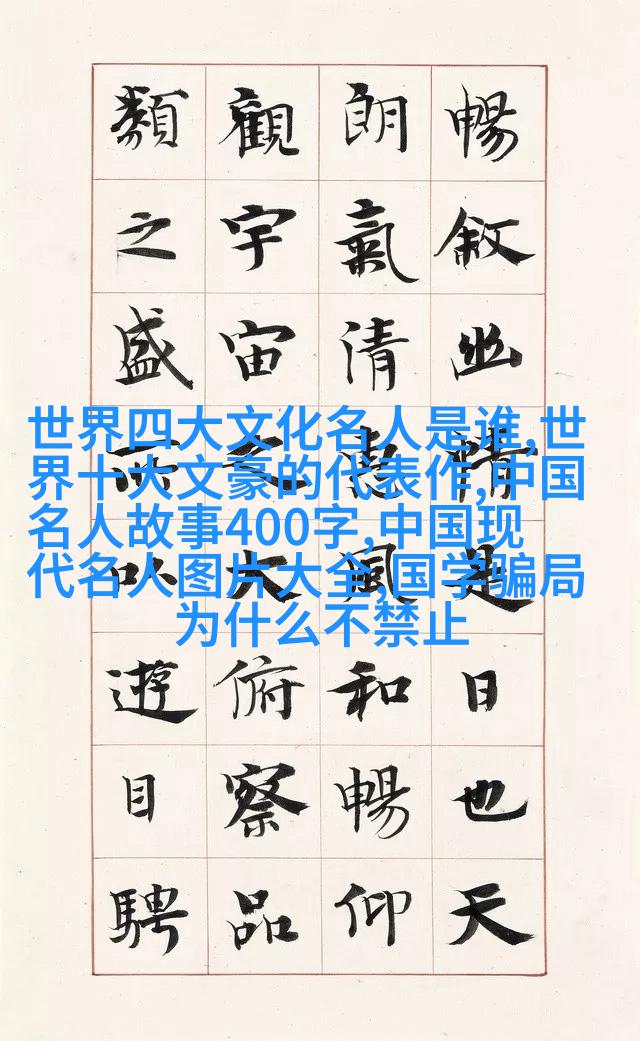 暢敘幽情是日也天
朗氣清惠風和暢仰
觀宇宙之大俯察品
類之盛所以遊目騁
世界四大文化名人是谁,世
界十大文豪的代表作,中国
名人故事400字,中国现
代名人图片大全,国学骗局
为什么不禁止